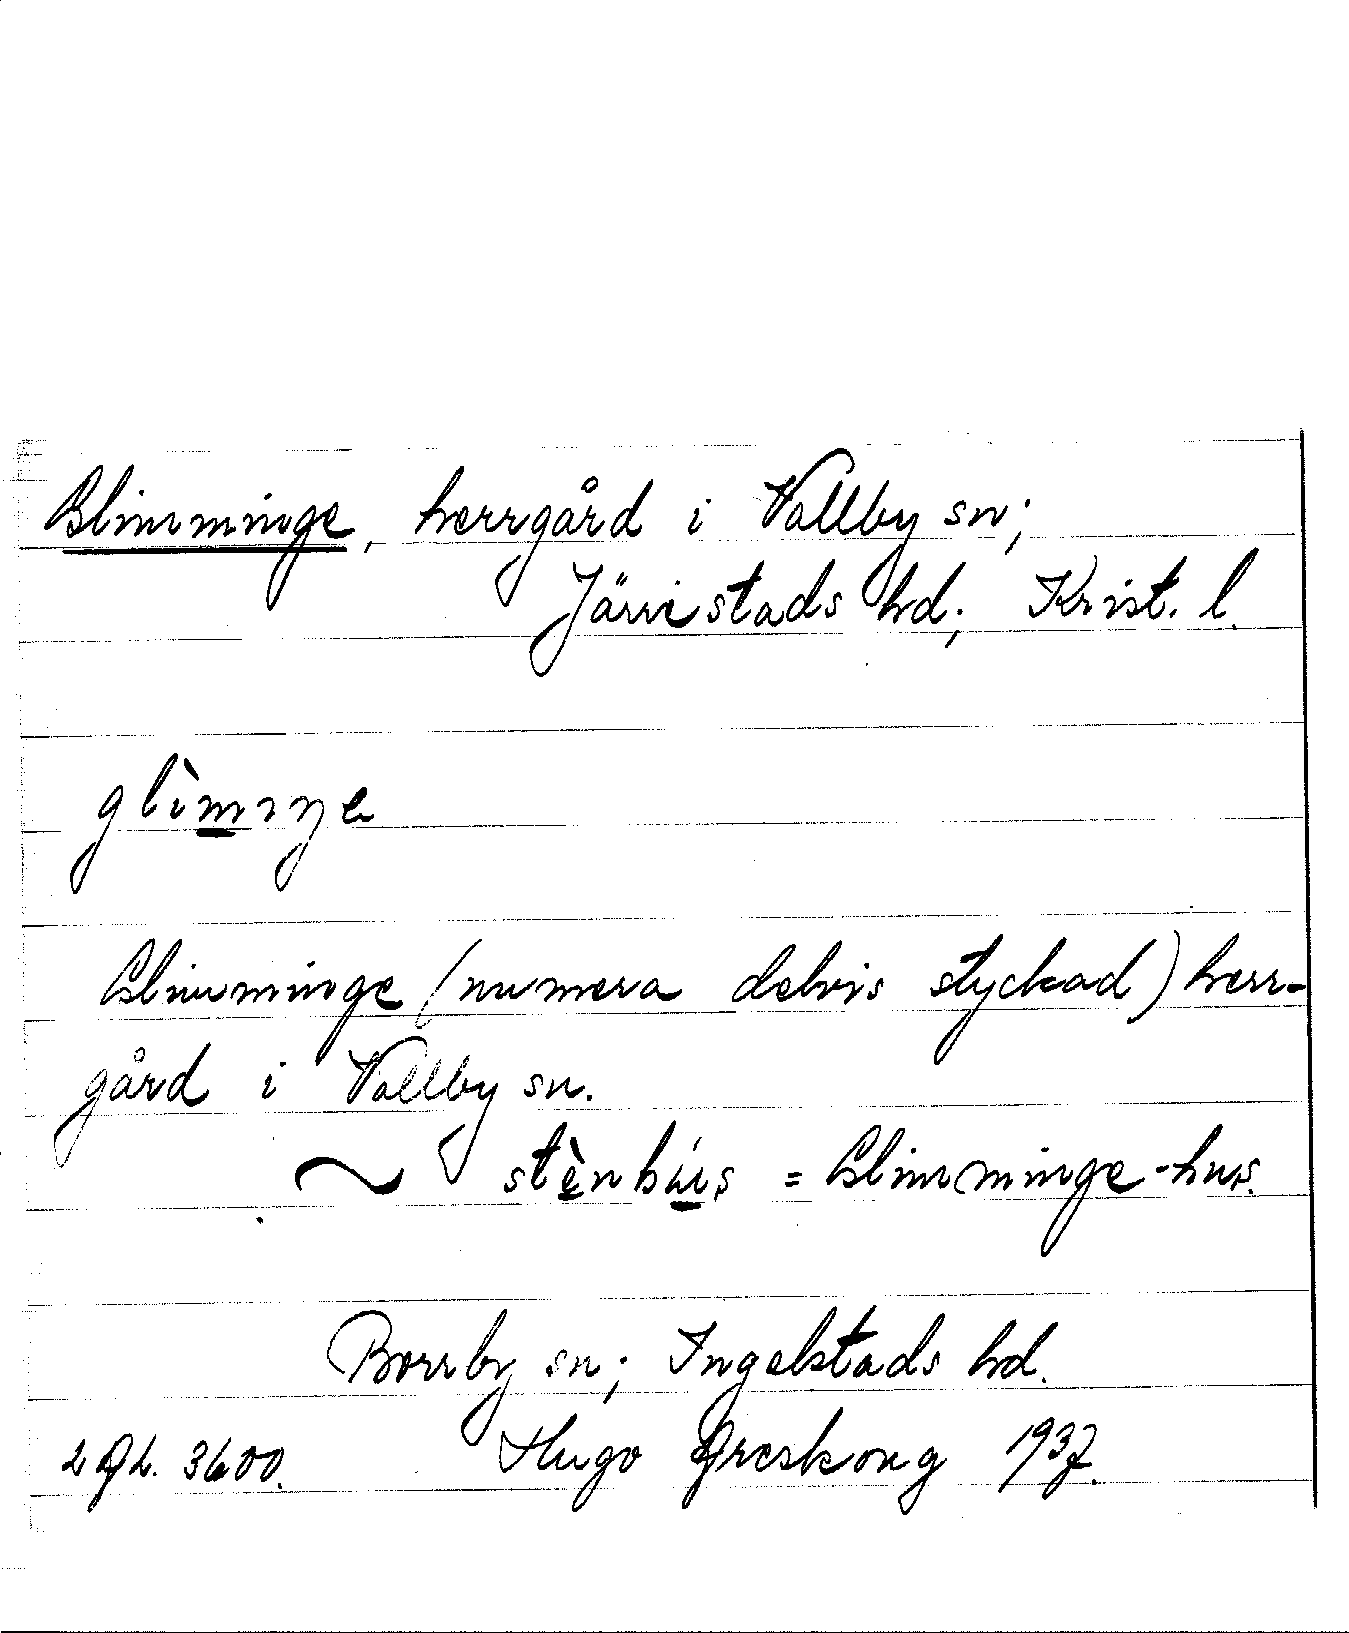 Glimminge, herrgård i Vallby sn;
Järrestads hd; Krist. l.
glìmıŋe
Glimminge (numera delvis styckad) herr-
gård i Vallby sn.
~ stènhús = Glimminge-hus.
Borrby sn; Ingelstads hd.
Hugo Areskoug 1937.